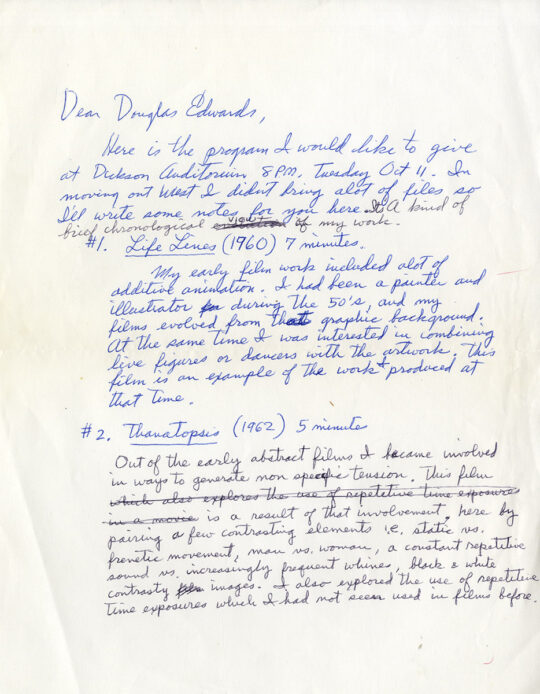 Dear Douglas Edwards,
Here is the program I would like to give
at Dickson Auditorium 8 PM. Tuesday Oct 11. In
moving out West I didn't bring alot of files so
I'll write some notes for you here. It's A kind of
brief chronological view of my work.
#1. Life Lines (1960) 7 minutes.
My early film work included alot of
additive animation. I had been a painter and
illustrator during the 50's, and my
films evolved from that graphic background.
At the same time I was interested in combining
live figures or dancers with the artwork. This
film is an example of the work I produced at
that time.
#2. Thanatopsis (1962) 5 minutes
Out of the early abstract films I became involved
in ways to generate non specific tension. This film
which also explores the use of repetitive time exposures
in a movie is a result of that involvement, here by
pairing a few contrasting elements i.e. static vs.
frenetic movement, man vs. woman, a constant repetitive
sound vs. increasingly frequent whines, black & white
contrasty images. I also explored the use of repetitive
time exposures which I had not seen used in films before.